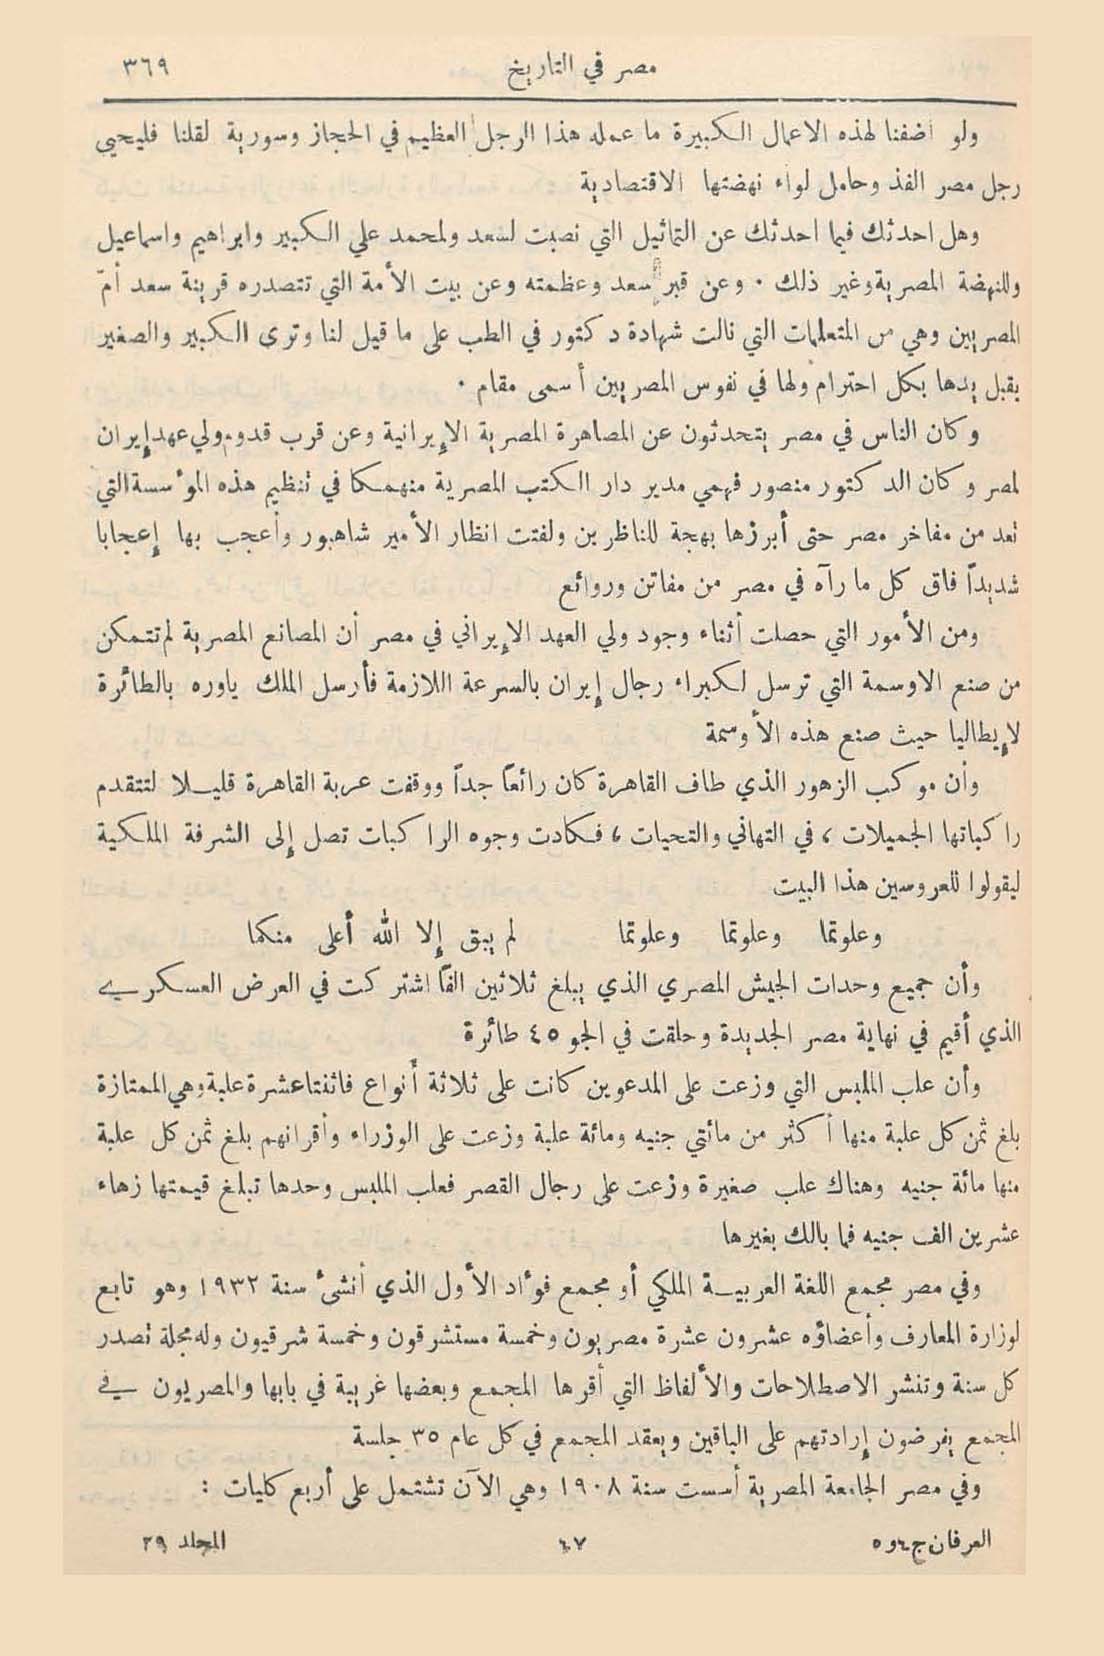 مصر في التاريخ ٣٦٩
ولو اضفنا لهذه الاعمال الكبيرة ما عمله هذا الرجل العظيم في الحجاز وسورية لقلنا فليحيي
رجل مصر الفذ وحامل لواء نهضتها الاقتصادية
وهل احدثك فيما احدثك عن التماثيل التي نصبت لسعد ولمحمد علي الكبير وابراهيم واسماعيل
وللنهضة المصرية وغير ذلك . وعن قبر سعد وعظمته وعن بيت الأمة التي تتصدره قرينة سعد أمّ
المصريين وهي من المتعلمات التي نالت شهادة دكتور في الطب على ما قيل لنا وترى الكبير والصغير
يقبل يدها بكل احترام ولها في نفوس المصريين أسمى مقام .
وكان الناس في مصر يتحدثون عن المصاهرة المصرية الإيرانية وعن قرب قدوم ولي عهد إيران
لمصر وكان الدكتور منصور فهمي مدير دار الكتب المصرية منهمكا في تنظيم هذه المؤسسة التي
تعد من مفاخر مصر حتى أبرزها بهجة للناظرين ولفتت انظار الأمير شاهبور وأعجب بها إعجابا
شديداً فاق كل ما رآه في مصر من مفاتن وروائع
ومن الأمور التي حصلت أثناء وجود ولي العهد الإيراني في مصر أن المصانع المصرية لم تتمكن
من صنع الاوسمة التي ترسل لكبراء رجال إيران بالسرعة اللازمة فأرسل الملك ياوره بالطائرة
لإيطاليا حيث صنع هذه الأوسمة
وأن موكب الزهور الذي طاف القاهرة كان رائعاً جداً ووقفت عربة القاهرة قليلا لتتقدم
راكباتها الجميلات ، في التهاني والتحيات ، فكادت وجوه الراكبات تصل إلى الشرفة الملكية
ليقولوا للعروسين هذا البيت
وعلوتما وعلوتما وعلوتما لم يبق إلا الله أعلى منكما
وأن جميع وحدات الجيش المصري الذي يبلغ ثلاثين الفاً اشتركت في العرض العسكري
الذي أقيم في نهاية مصر الجديدة وحلقت في الجو ٤٥ طائرة
وأن علب الملبس التي وزعت على المدعوين كانت على ثلاثة أنواع فاثنتا عشرة علبة وهي الممتازة
بلغ ثمن كل علبة منها أكثر من مائتي جنيه ومائة علبة وزعت على الوزراء وأقرانهم بلغ ثمن كل علبة
منها مائة جنيه وهناك علب صغيرة وزعت على رجال القصر فعلب الملبس وحدها تبلغ قيمتها زهاء
عشرين الف جنيه فما بالك بغيرها
وفي مصر مجمع اللغة العربية الملكي أو مجمع فؤاد الأول الذي أنشئ سنة ١٩٣٢ وهو تابع
لوزارة المعارف وأعضاؤه عشرون عشرة مصريون وخمسة مستشرقون وخمسة شرقيون وله مجلة تصدر
كل سنة وتنشر الاصطلاحات والألفاظ التي أقرها المجمع وبعضها غريبة في بابها والمصريون في
المجمع يفرضون إرادتهم على الباقين ويعقد المجمع في كل عام ٣٥ جلسة
وفي مصر الجامعة المصرية أسست سنة ١٩٠٨ وهي الآن تشتمل على أربع كليات :
العرفان ج ٤ و ٥ ٤٧ المجلد ٢٩